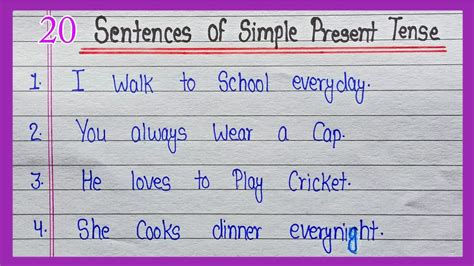 20 Sentences of Simple Present Tense
1. I Walk to School everyday.
2. You always Wear a Cap.
3. He loves to Play Cricket.
4. She Cooks dinner everynight.